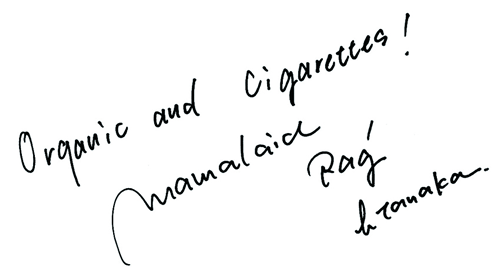 Organic and Cigarettes!
mamalaid
Rag
h tanaka.